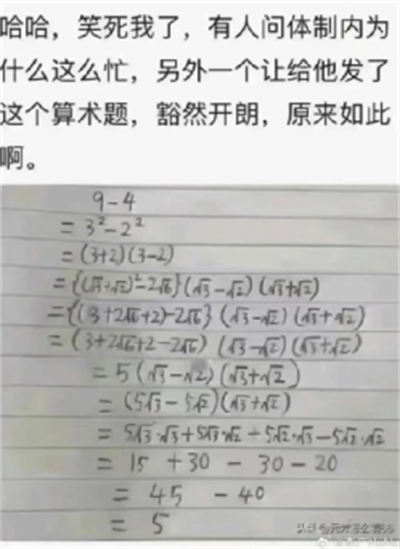 哈哈，笑死我了，有人问体制内为
什么这么忙，另外一个让给他发了
这个算术题，豁然开朗，原来如此
啊。
9-4
= 3²-2²
= (3+2)(3-2)
= {(√3+√2)²-2√6}(√3-√2)(√3+√2)
= {(3+2√6+2)-2√6}(√3-√2)(√3+√2)
= (3+2√6+2-2√6)(√3-√2)(√3+√2)
= 5(√3-√2)(√3+√2)
= (5√3-5√2)(√3+√2)
= 5√3·√3+5√3·√2-5√2·√3-5√2·√2
= 15 +30 - 30 - 20
= 45 - 40
= 5